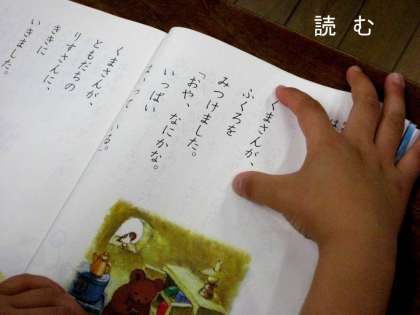 読む
くまさんが、
ふくろを
みつけました。
「おや、なにかな。
いっぱい
くまさんが、
ともだちの
りすさんに、
ききに
いきました。